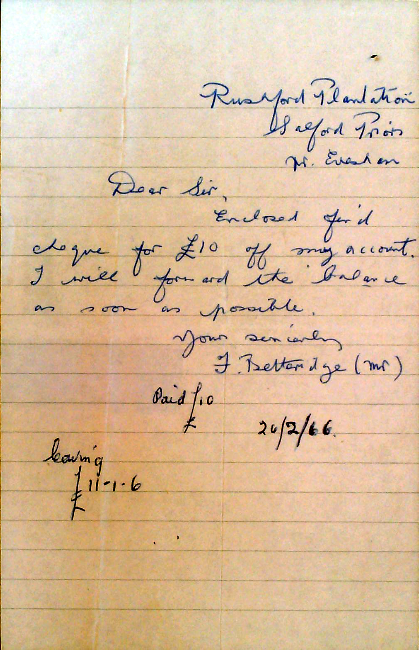 Rushford Plantation
Salford Priors
Nr. Evesham
Dear Sir,
Enclosed find
cheque for £10 off my account.
I will forward the balance
as soon as possible.
Yours sincerely
F. Betteridge (Mr)
Paid £10
26/2/66.
leaving
£11-1-6